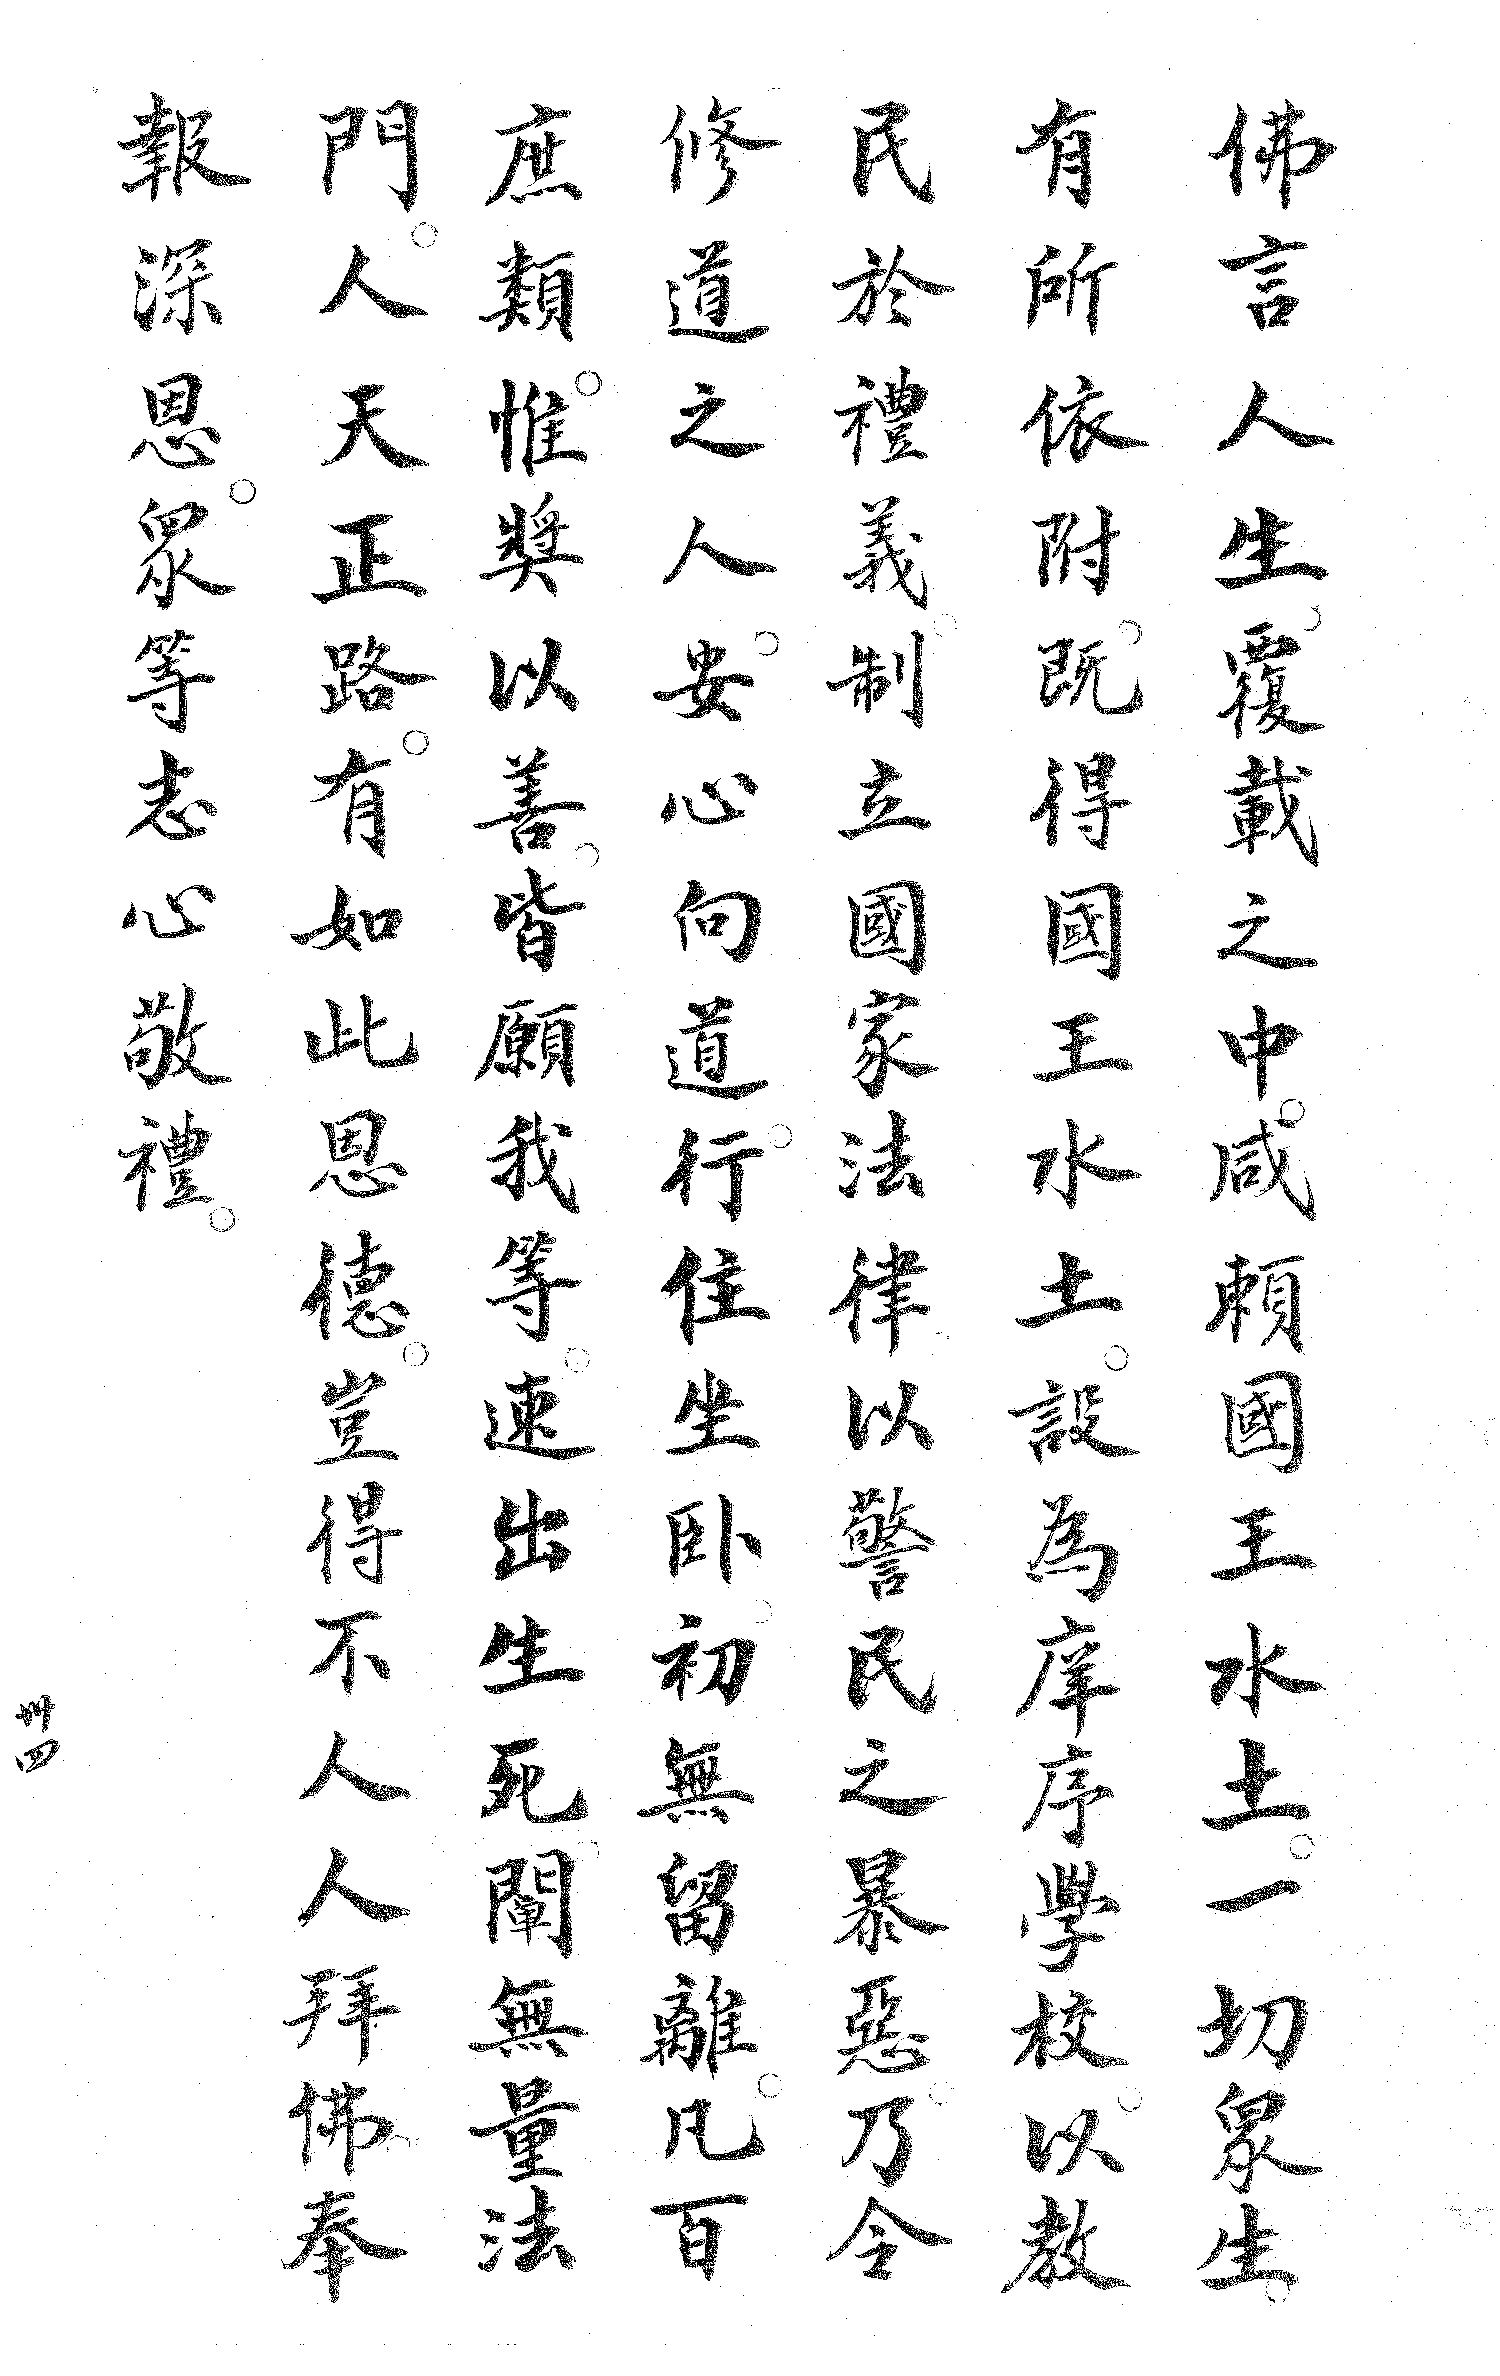 佛言人生。覆載之中。咸賴國王水土。一切眾生。
有所依附。既得國王水土。設為庠序學校。以教
民於禮義。制立國家法律。以警民之暴惡。乃令
修道之人。安心向道。行住坐臥。初無留離。凡百
庶類。惟獎以善。皆願我等。速出生死。闡無量法
門。人天正路。有如此恩德。豈得不人人拜佛。奉
報深恩。眾等志心敬禮。
卅四